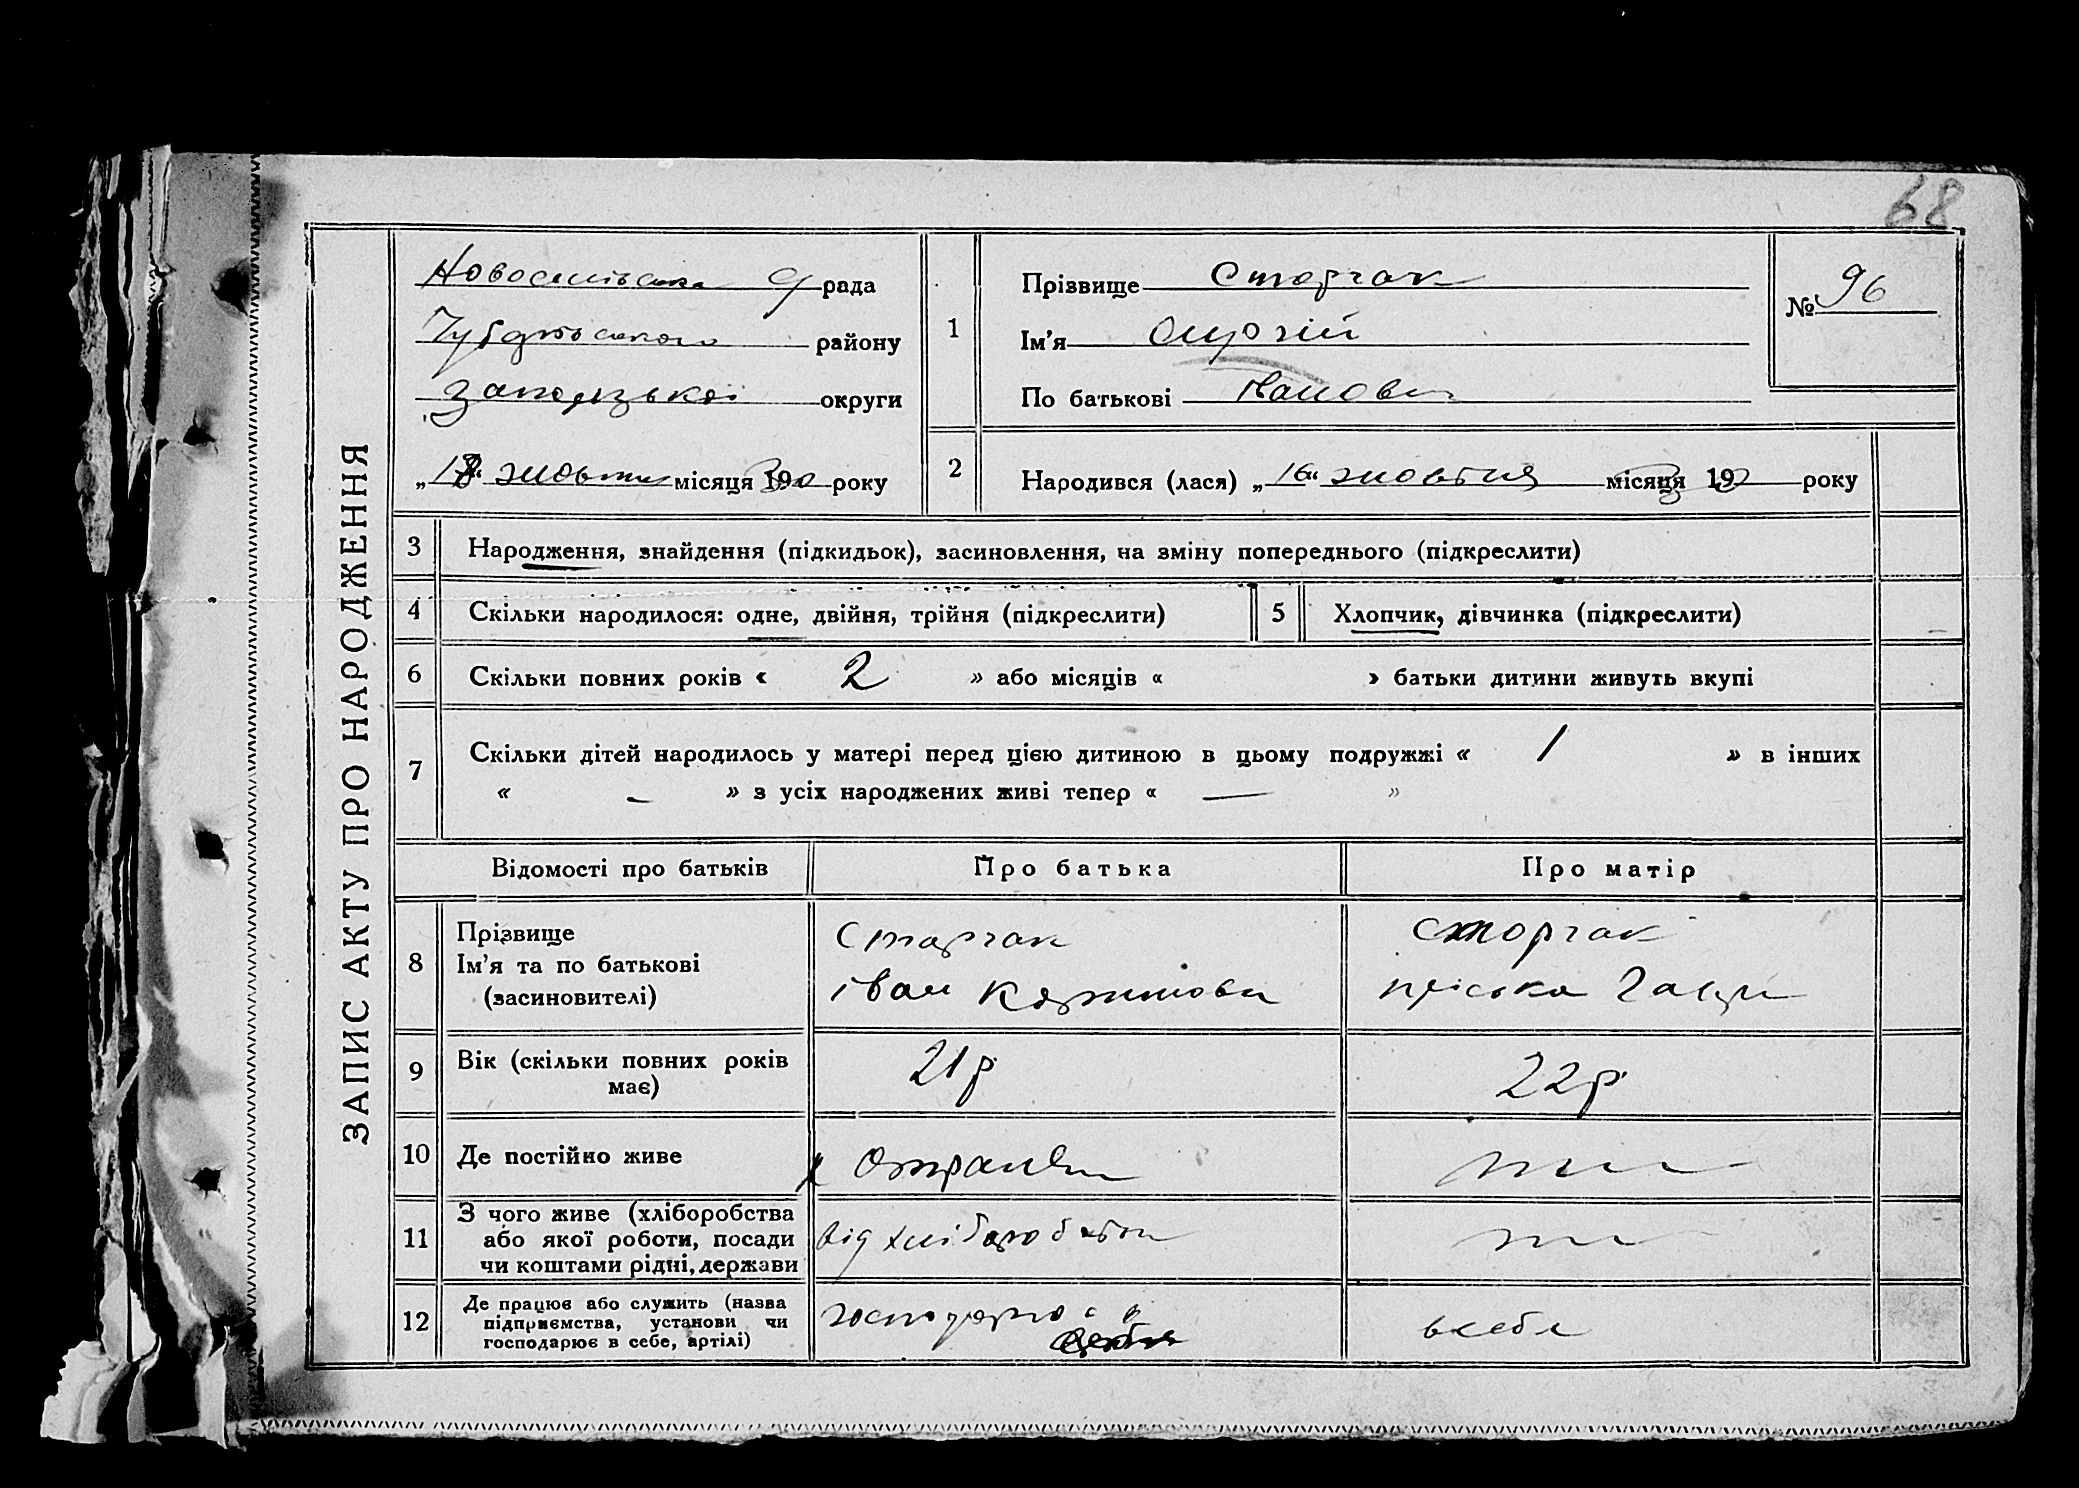 68
ЗАПИС АКТУ ПРО НАРОДЖЕННЯ
рада
району
округи
місяця 1930 року
1
Прізвище Сторчак
Ім'я Сергій
По батькові Іванович
№ 96
2
Народився (лася) „16“ жовтня місяця 1930 року
3 Народження, знайдення (підкидьок), засиновлення, на зміну попереднього (підкреслити)
4 Скільки народилося: одне, двійня, трійня (підкреслити)
5 Хлопчик, дівчинка (підкреслити)
6 Скільки повних років « 2 » або місяців « » батьки дитини живуть вкупі
7 Скільки дітей народилось у матері перед цією дитиною в цьому подружжі « 1 » в інших
« – » з усіх народжених живі тепер « — »
Відомості про батьків Про батька Про матір
8 Прізвище
Ім'я та по батькові
(засиновителі)
Сторчак
Іван
Сторчак
пріська
9 Вік (скільки повних років
має)
21р
22р
10 Де постійно живе
11 З чого живе (хліборобства
або якої роботи, посади
чи коштами рідні, держави
від хліборобства
12 Де працює або служить (назва
підприємства, установи чи
господарює в себе, артілі)
в себе